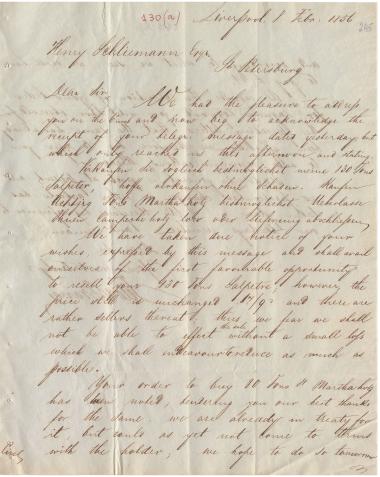 130(a)
245
Liverpool 1 Febr. 1856
Henry Schliemann Esqre
St. Petersburg
Dear Sir,
We had the pleasure to address
you on the and now beg to acknowledge the
receipt of your telegr. message dated yesterday but
which only reached us this afternoon and stating
Verkaufen Sie sogleich bestmöglichst meine 130 Tons
Salpeter, hoffe abokaufen ohne Schaden. Kaufen
80 Marthaholz bestmöglichst
campecheholz oder
We have taken due notice of your
wishes expressed by this message and shall avail
ourselves of the first favourable opportunity
to resell your Tons Salpetre, however, the
price still is unchanged 17/9 and there are
rather sellers thereat thus we fear we shall
not be able to effect the sale without a small loss
which we shall endeavour to reduce as much as
possible.
Your order to buy 80 Tons St Marthaholz
has been noted, tendering you our best thanks
for the same. we are already in treaty for
it, but could as yet not come to terms
with the holder; we hope to do so tomorrow